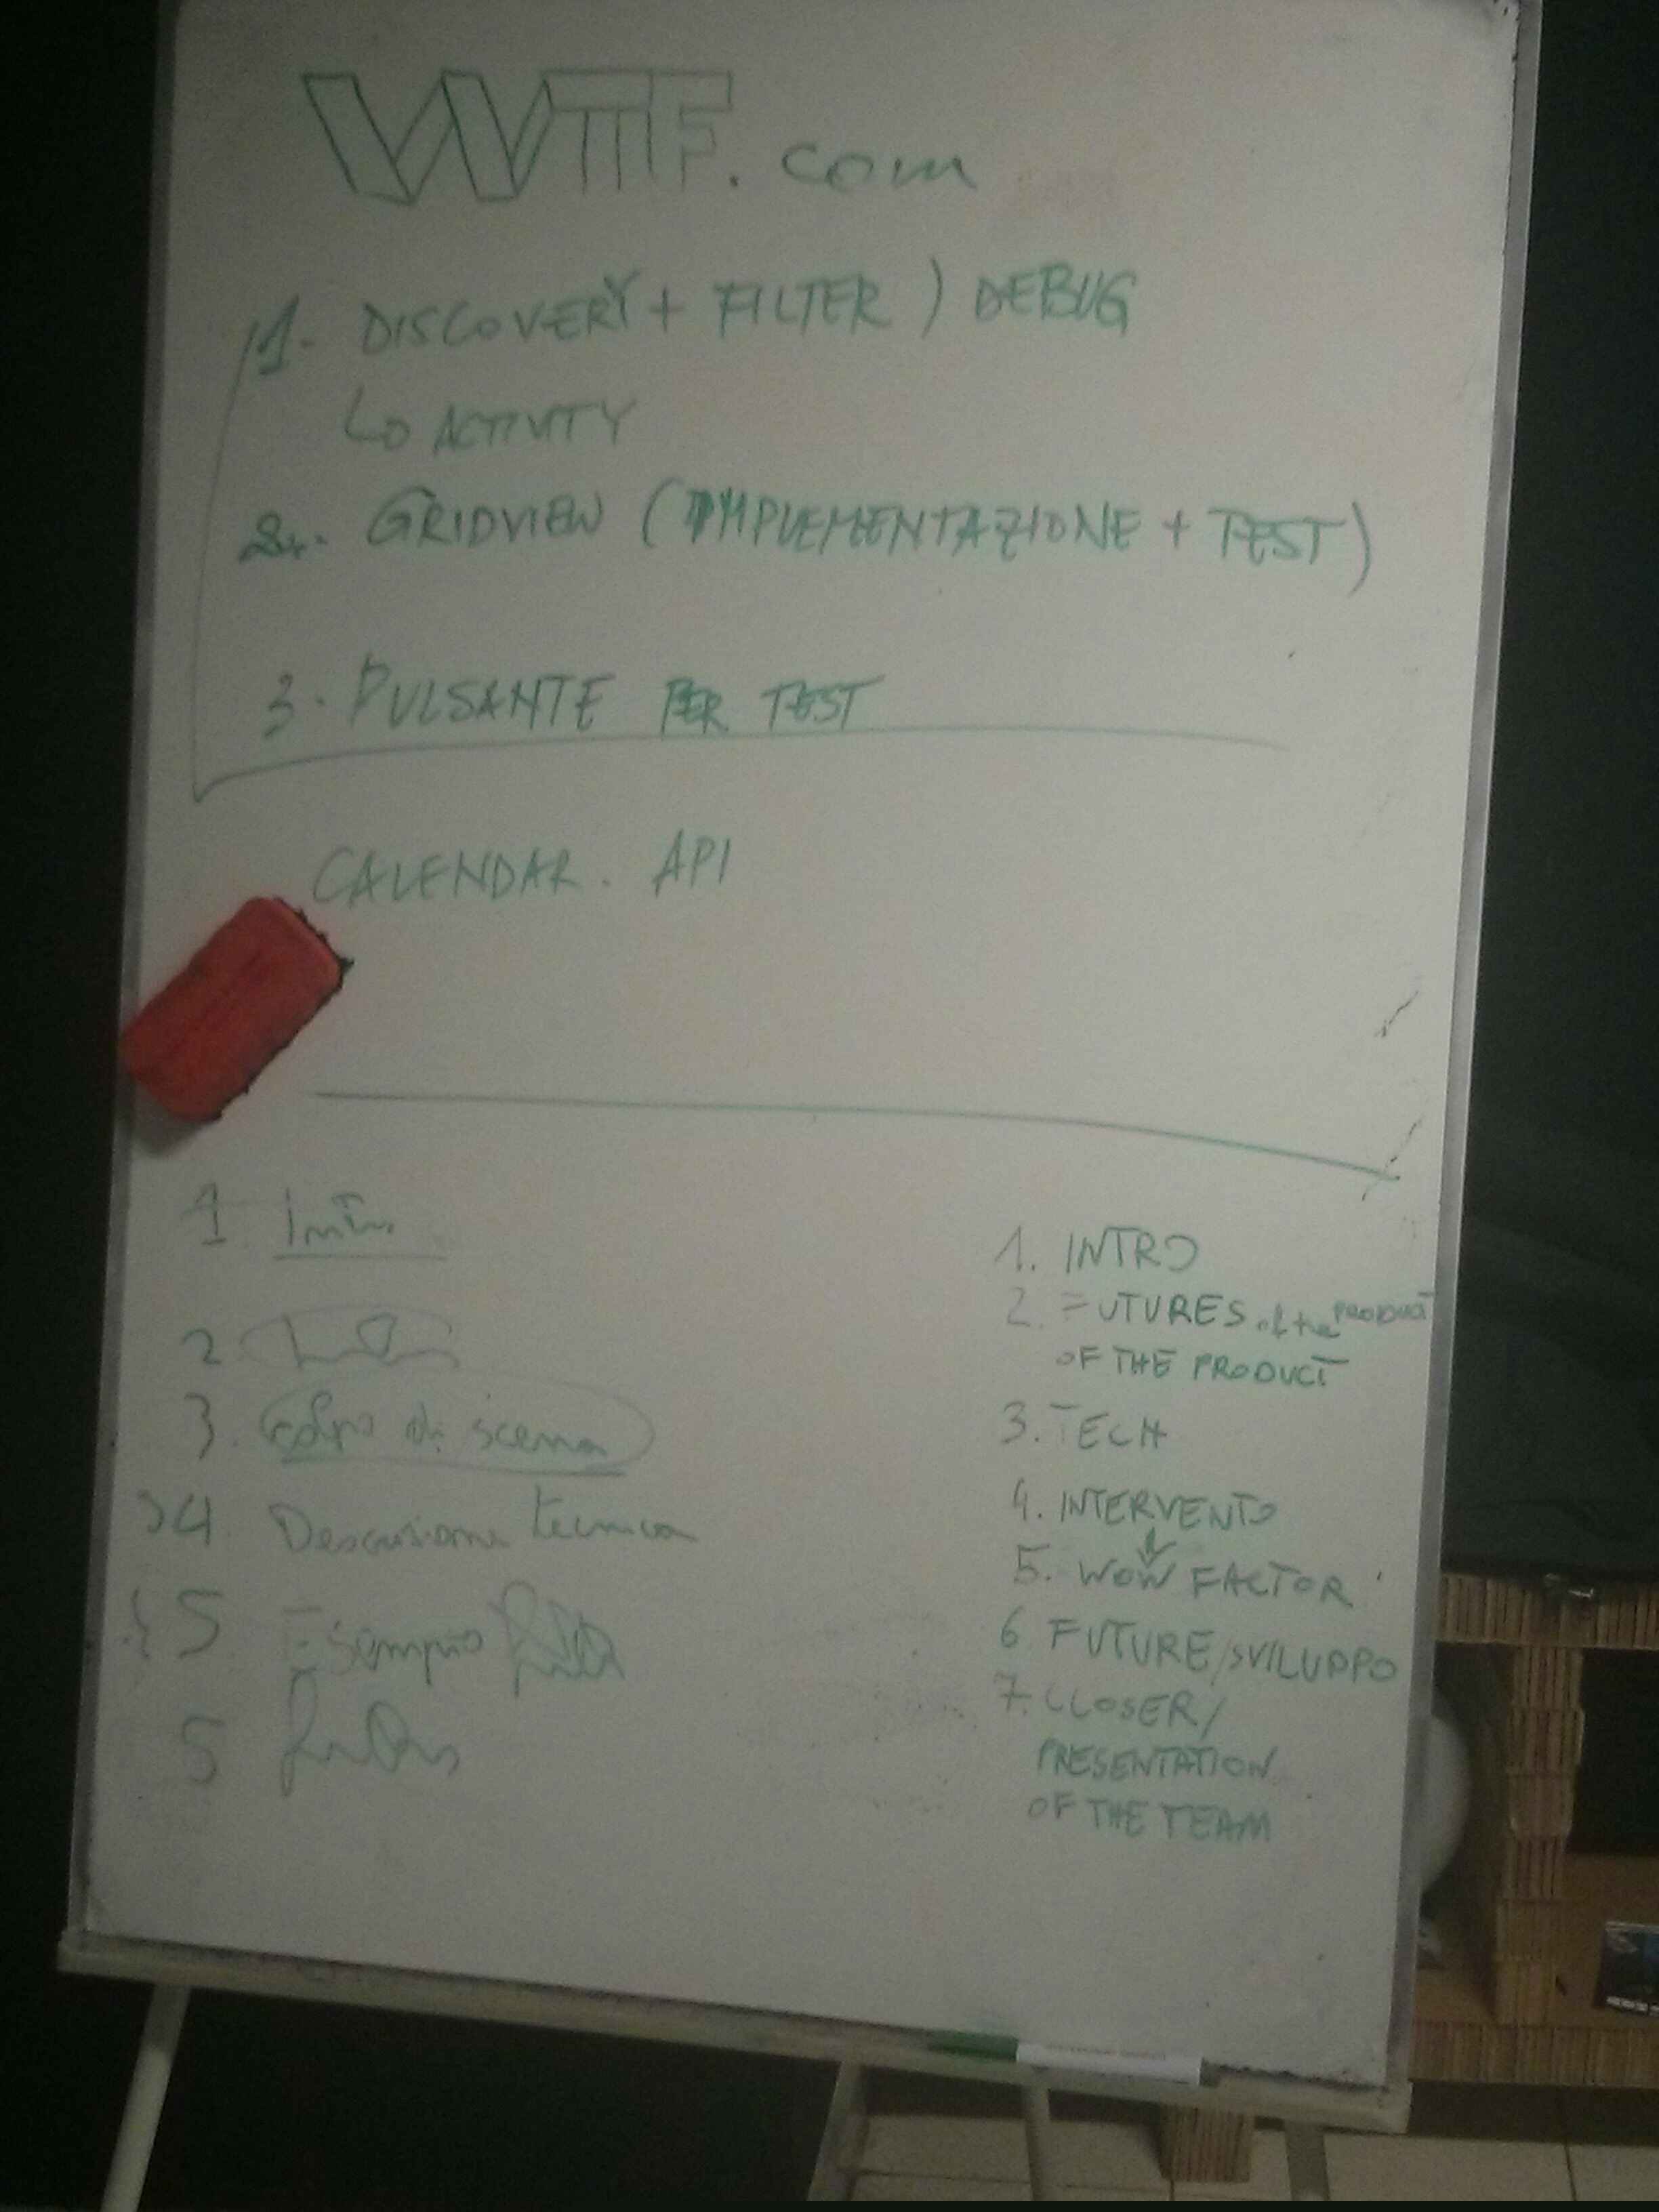 WTF.com
1. DISCOVERY + FILTER ) DEBUG
ACTIVITY
2. GRIDVIEW (IMPLEMENTAZIONE + TEST)
3. PULSANTE PER TEST
CALENDAR. API
1 Intro
2
3. Colpo di scena
4. Descrizione tecnica
5 Esempio
5
1. INTRO
2. FUTURES of the PRODUCT
OF THE PRODUCT
3. TECH
4. INTERVENTO
5. WOW FACTOR
6 FUTURE/SVILUPPO
7. CLOSER/
PRESENTATION
OF THE TEAM